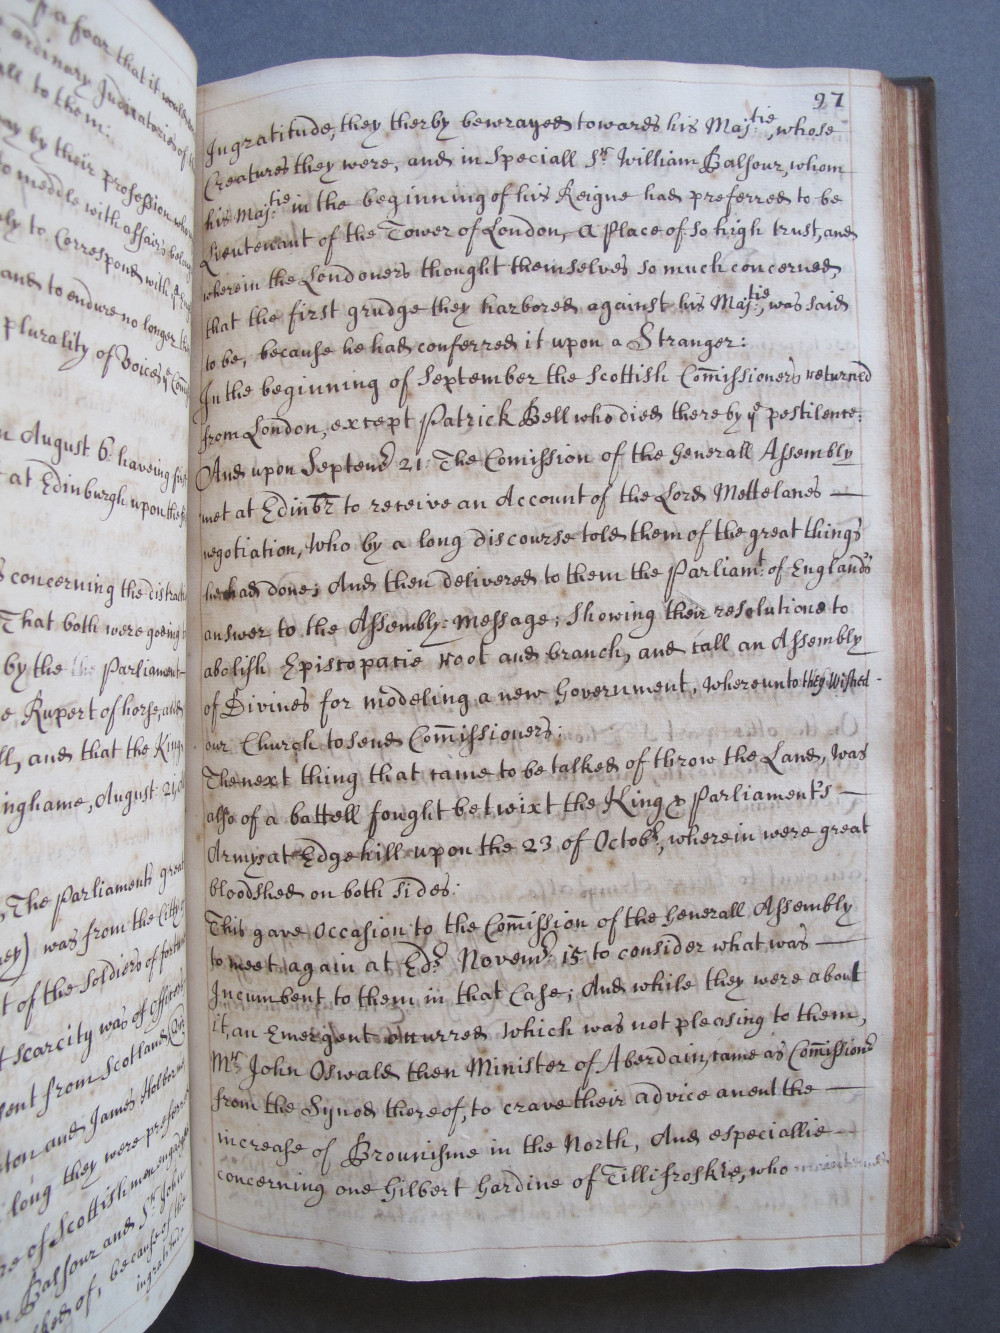 op a foar that it would
ordinary Judicatories of
all to them:
way by their profession who
to meddle with affairs belong
ly to Correspond with
and to endure no longer the
plurality of Voices ye Comm
n August 6: haveing
at Edinburgh upon the
s concerning the distract
That both were goeing
by the the Parliament
e Rupert of horse, and
ll, and that the King
inghame, August 21
The Parliaments great
ey) was from the Citty
t of the Soldiers of fortune
t scarcity was of officers
sent from Scotland
ton and James Holborne
long they were preferred
re of Scottishmen engadged
Balfour and Sr. John
ked of, because of the
ingratitude
97
Ingratitude, they therby bewrayed towards his Maj:tie, whose
Creatures they were, and in Speciall Sr. William Balfour, whom
his Maj:tie in the beginning of his Reigne had preferred to be
Lieutenant of the Tower of London, A Place of so high trust, and
wherein the Londoners thought themselves so much concerned,
that the first grudge they harbored against his Maj:tie, was said
to be, because he had conferred it upon a Stranger:
In the beginning of September the Scottish Com̄issioners returned
from London, except Patrick Bell who died there by ye pestilence:
And upon Septemr 21: The Comission of the Generall Assembly
met at Edinbr to receive an Account of the Lord Mettelanes —
negotiation, Who by a long discourse told them of the great things
he had done; And then delivered to them the Parliamt: of Englands
answer to the Assembly: Message; Showing their resolutione to
abolish Episcopacie root and branch, and call an Assembly
of Divines for modeling a new Government, Whereunto they Wished -
our Church to send Com̄issioners:
The next thing that came to be talked of throw the Land, was
also of a battell fought betwixt the King & Parliament's —
Armys at Edgehill upon the 23 of Octobr, wherein were great
bloodshed on both sides:
This gave Occasion to the Com̄ission of the Generall Assembly
to meet again at Edr Novemr 15 to consider what was —
Incumbent to them in that Case; And while they were about
it, an Emergent occurred which was not pleasing to them,
Mr John Oswald then Minister of Aberdain, came as Com̄issionr
from the Synod thereof, to crave their advice anent the —
increase of Brounisme in the North, And especiallie —
concerning one Gilbert Gardine of Tillifroskie, who